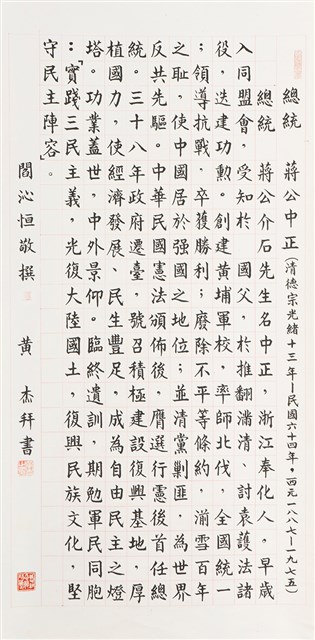 總統　蔣公中正(清德宗光緒十三年—民國六十四年。西元一八八七—一九七五)
總統　蔣公介石先生名中正，浙江奉化人。早歲
入同盟會，受知於　國父，於推翻滿清、討袁護法諸
役，迭建功勳。創建黃埔軍校，率師北伐，全國統一
；領導抗戰，卒獲勝利；廢除不平等條約，湔雪百年
之恥，使中國居於强國之地位；並清黨剿匪，為世界
反共先驅。中華民國憲法頒佈後，膺選行憲後首任總
統。三十八年政府遷臺，號召積極建設復興基地，厚
植國力，使經濟發展、民生豐足，成為自由民主之燈
塔。功業蓋世，中外景仰。臨終遺訓，期勉軍民同胞
：「實踐三民主義，光復大陸國土，復興民族文化，堅
守民主陣容」。
閻沁恒敬撰　黃杰拜書